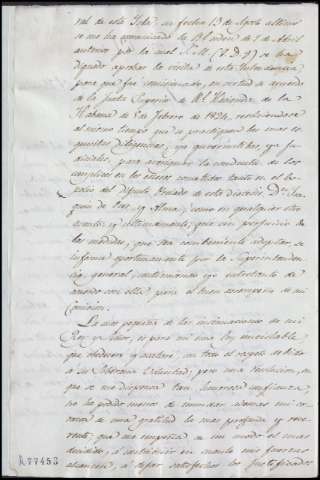 ral de esta Isla, en fecha 13 de Agosto ultimo
se me ha comunicado la Rl. orden de 9 de Abril
anterior por la cual S. M. (Q. D. G.) se ha
dignado aprobar la visita á esta Intendencia
para que fuí comisionado, en virtud de acuerdo
de la Junta Superior de Rl. Hacienda de la
Habana de 5 de Febrero de 1824,
al mismo tiempo que se practiquen las mas ex-
quisitas diligencias, ya gubernativas, ya ju-
diciales, para averiguar la conducta de los
complices en los excesos cometidos tanto en el ex-
polio del difunto Prelado de esta diocesis, Dn. Joa-
quin de Oses y Alzua, como en cualquier otro
asunto; y ultimamente, que sin perjuicio de
las medidas, que sea conveniente adoptar, se
informe oportunamente por la Superintenden-
cia general, continuando yo entretanto de
acuerdo con ella para el buen desempeño de mi
Comision.
La mas pequeña de las insinuaciones de mi
Rey y Señor, es para mi una ley inviolable,
que obedecer y acatar, con todo el respeto debido
á su Soberana Voluntad; pero una resolucion, en
que se me dispensa tan honrosa confianza,
no ha podido menos de escitar ademas mi co-
razon de una gratitud la mas profunda y reve-
rente que me empeña de un modo el mas
decidido, á contribuir en cuanto mis fuerzas
alcancen, á dejar satisfechos los justificados
R77453